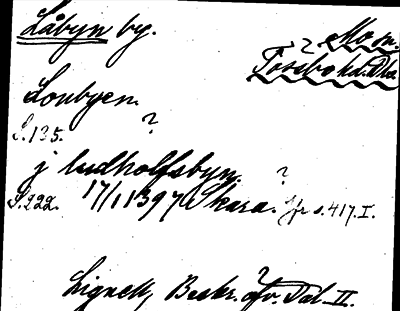 Låbyn by.
? Mo sn.
Tössbo hd. Dls.
Loubyen.
S. 135. ?
j ludholfsbyn. ?
S. 222. 17/1 1397 Skara. Jfr s. 417. I.
Lignell, Beskr. ? öfv. Dal. II.